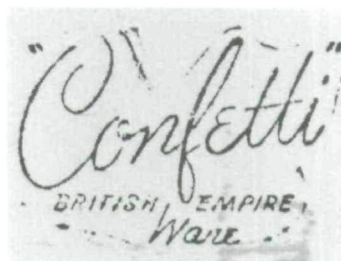 "Confetti"
BRITISH EMPIRE
Ware